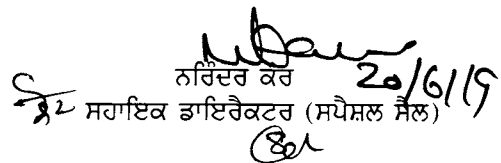 ਨਰਿੰਦਰ ਕੌਰ 20/6/19
ਸਹਾਇਕ ਡਾਇਰੈਕਟਰ (ਸਪੈਸ਼ਲ ਸੈੱਲ)